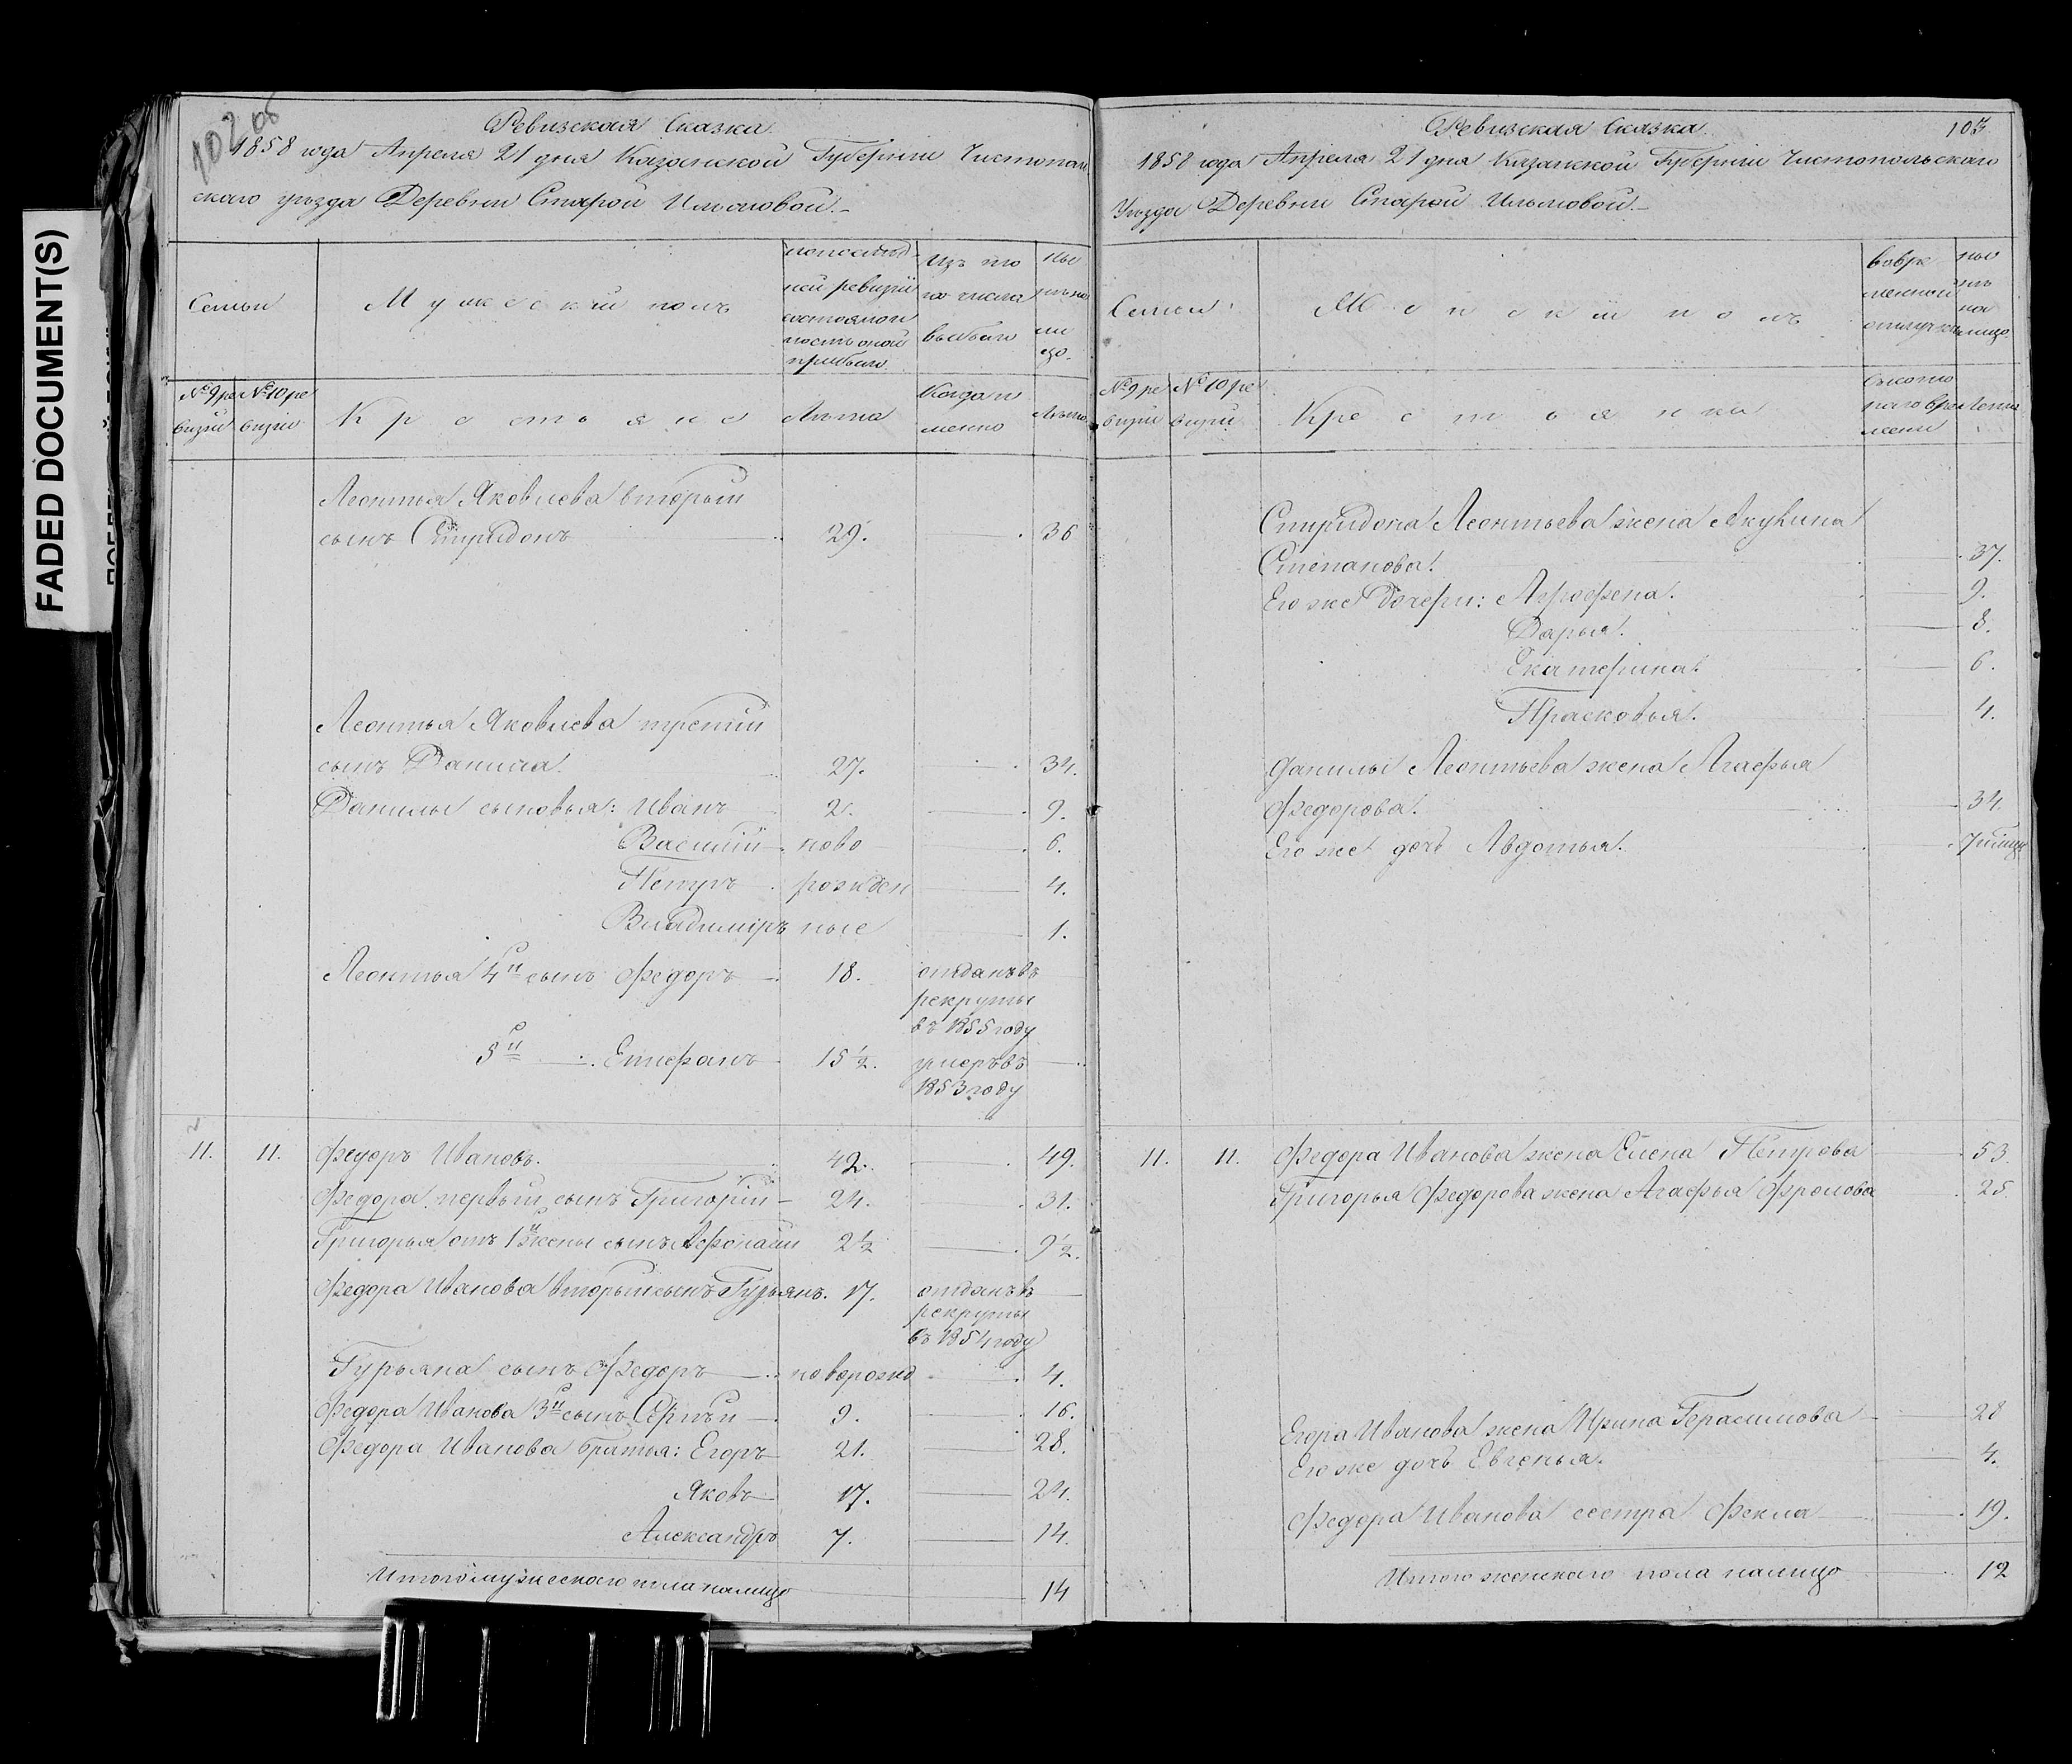 FADED DOCUMENT(S)
102 об
Ревизская Сказка
1858 года Апреля 21 дня Казанской Губернии Чистополь
скаго уезда Деревни Старой Ильмовой.
Семьи
Мужеский полъ
по послед
ней ревизiи
состояло и
после оной
прибыло
Изъ то
го числа
выбыло
ны
не на
ли
цо.
№ 9 ре
визiи
№ 10 ре
визiи
Крестьяне
Лета
Когда и
менно
Лета
Леонтья Яковлева вторый
сынъ Спиридонъ 29. 36
Леонтья Яковлева третий
сынъ Данила. 27. 34.
Данилы сыновья: Иванъ 2. 9.
Василiй ново 6.
Петръ рожден 4.
Владимiръ ные 1.
Леонтья 4й сынъ Федоръ 18. отданъ въ
рекруты
въ 1855 году
5й Епифанъ 15½. умеръ въ
1853 году
11. 11. Федоръ Ивановъ. 42. 49.
Федора первый сынъ Григорiй 24. 31.
Григорья отъ 1й жены сынъ Афонасiй 2½ 9½.
Федора Иванова вторый сынъ Гурьянъ. 17. отданъ въ
рекруты
въ 1854 году
Гурьяна сынъ Федоръ новорожд 4.
Федора Иванова 3й сынъ Сергей 9. 16.
Федора Иванова братья: Егоръ 21. 28.
Яковъ 17. 24.
Александръ 7. 14.
Итого мужескаго пола налицо 14
Ревизская Сказка 103
1858 года Апреля 21 дня Казанской Губернiи Чистопольскаго
Уезда Деревни Старой Ильмовой.
Семьи
Женский полъ
во вре
менной
отлучке
ны
не
на
лицо.
№ 9 ре
визiи
№ 10 ре
визiи
Крестьянки
съ кото
раго вре
мени
Лета
Спиридона Леонтьева жена Акулина
Степанова. 37.
Его же дочери: Аграфена. 9.
Дарья. 8.
Екатерина. 6.
Прасковья. 4.
Данилы Леонтьева жена Агафья
Федорова. 34.
Его же дочь Авдотья.
11. 11. Федора Иванова жена Елена Петрова 53.
Григорья Федорова жена Агафья Фролова 25.
Егора Иванова жена Ирина Герасимова 28
Его же дочь Евгенья. 4.
Федора Иванова сестра Фекла 19.
Итого женскаго пола налицо 12